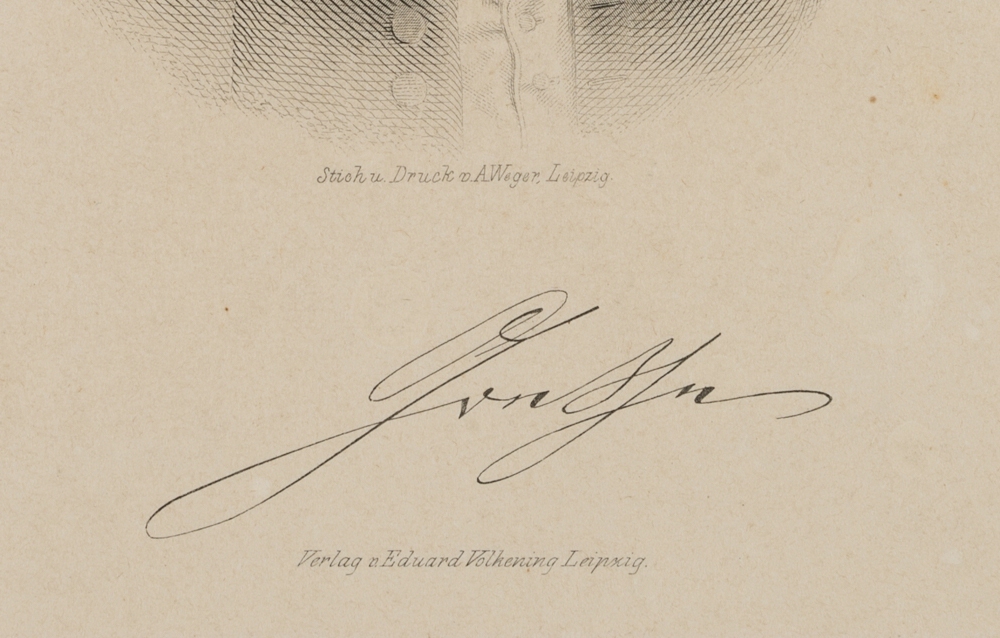 Stich u. Druck v. A. Weger, Leipzig.
Goethe
Verlag v. Eduard Volkening Leipzig.